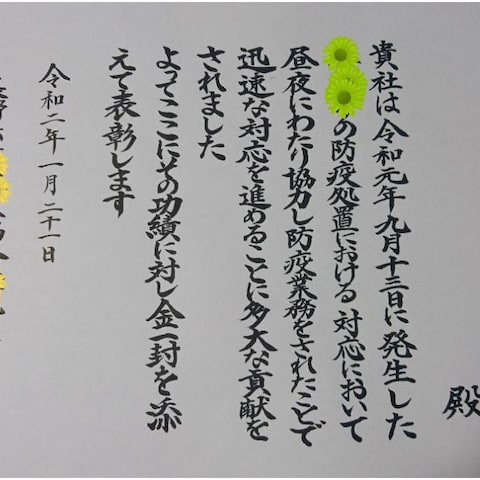 殿
貴社は令和元年九月十三日に発生した
の防疫処置における対応において
昼夜にわたり協力し防疫業務をされたことで
迅速な対応を進めることに多大な貢献を
されました
よってここにその功績に対し金一封を添
えて表彰します
令和二年一月二十一日